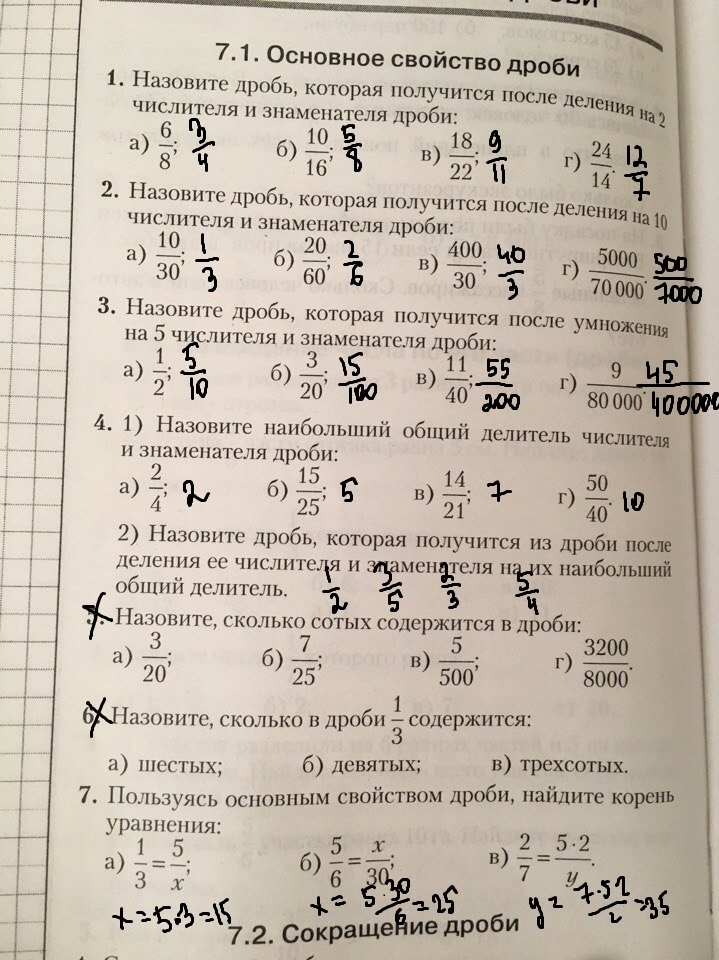 7.1. Основное свойство дроби
1. Назовите дробь, которая получится после деления на 2
числителя и знаменателя дроби:
а) 6/8; 3/4 б) 10/16; 5/8 в) 18/22; 9/11 г) 24/14. 12/7
2. Назовите дробь, которая получится после деления на 10
числителя и знаменателя дроби:
а) 10/30; 1/3 б) 20/60; 2/6 в) 400/30; 40/3 г) 5000/70 000. 500/7000
3. Назовите дробь, которая получится после умножения
на 5 числителя и знаменателя дроби:
а) 1/2; 5/10 б) 3/20; 15/100 в) 11/40; 55/200 г) 9/80 000. 45/400000
4. 1) Назовите наибольший общий делитель числителя
и знаменателя дроби:
а) 2/4; 2 б) 15/25; 5 в) 14/21; 7 г) 50/40. 10
2) Назовите дробь, которая получится из дроби после
деления ее числителя и знаменателя на их наибольший
общий делитель. 1/2 3/5 2/3 5/4
5. Назовите, сколько сотых содержится в дроби:
а) 3/20; б) 7/25; в) 5/500; г) 3200/8000.
6. Назовите, сколько в дроби 1/3 содержится:
а) шестых; б) девятых; в) трехсотых.
7. Пользуясь основным свойством дроби, найдите корень
уравнения:
а) 1/3 = 5/x; б) 5/6 = x/30; в) 2/7 = 5·2/y.
x = 5·3 = 15 x = 5·30/6 = 25 y = 7·5·2/2 = 35
7.2. Сокращение дроби